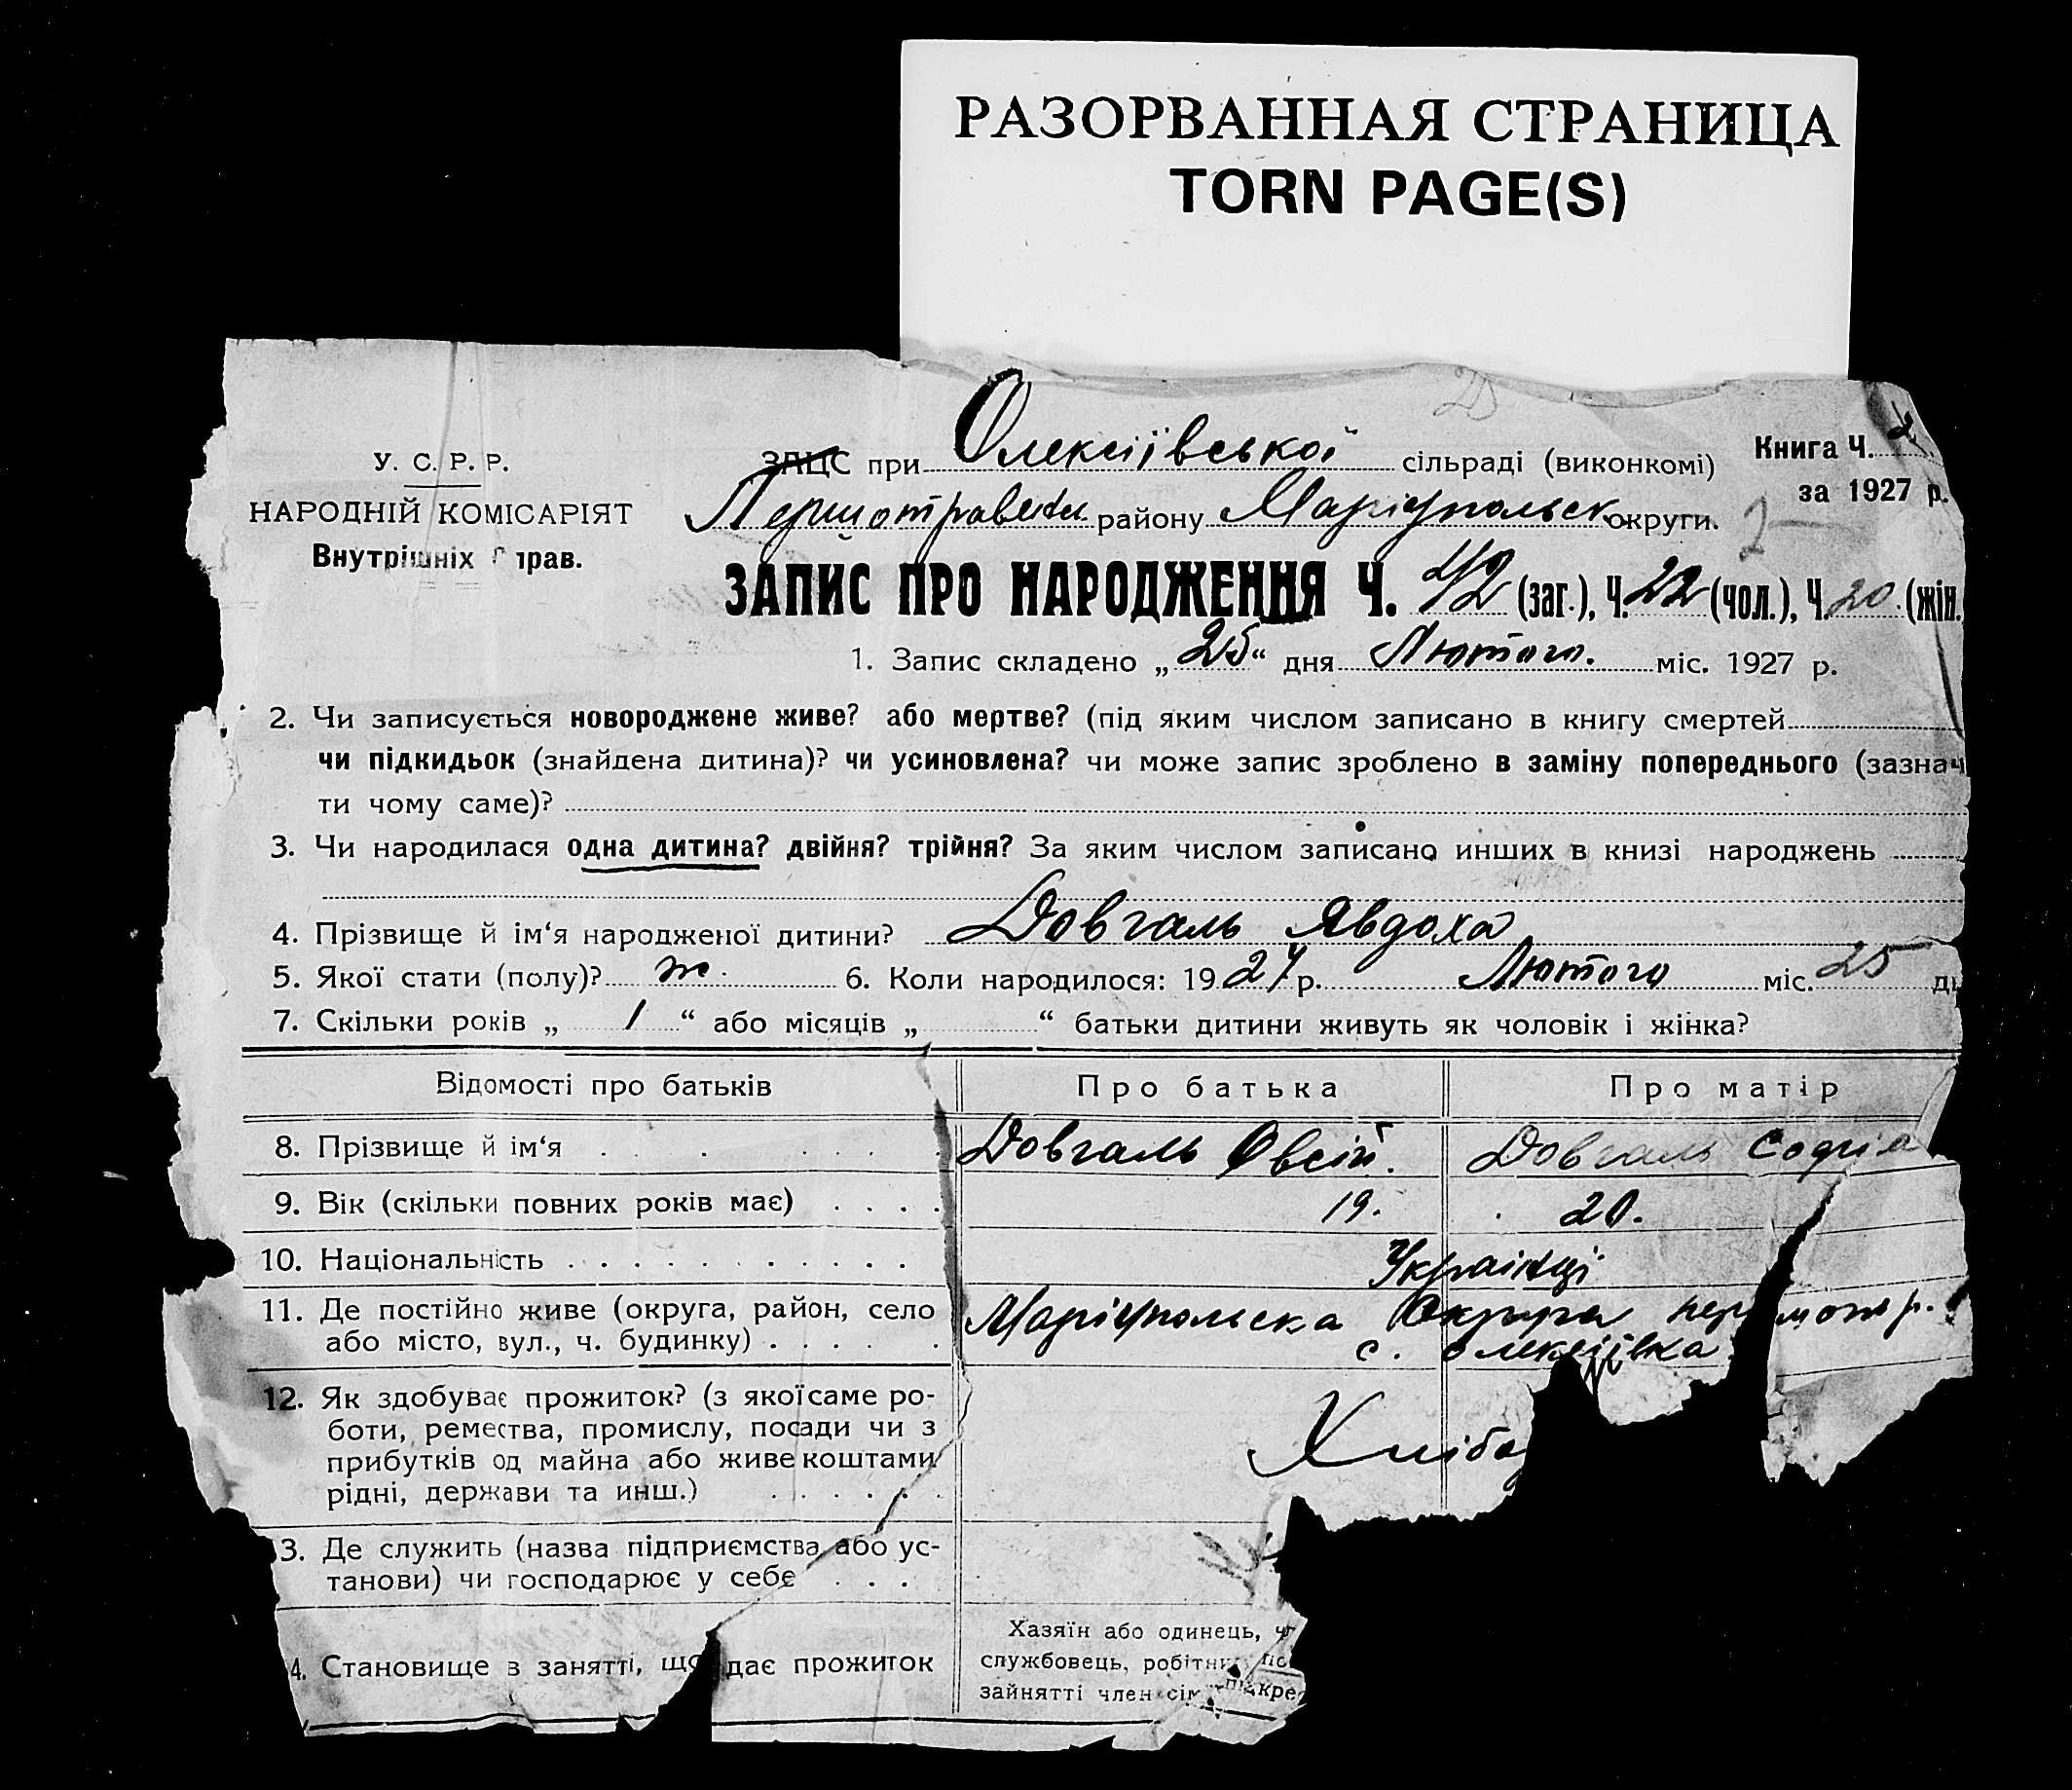 РАЗОРВАННАЯ СТРАНИЦА
TORN PAGE(S)
У. С. Р. Р.
НАРОДНІЙ КОМІСАРІЯТ
Внутрішніх Справ.
ЗАЦС при Олексіївської сільраді (виконкомі)
Першотравени району Маріупольськ округи.
Книга Ч. 2
за 1927 р.
ЗАПИС ПРО НАРОДЖЕННЯ Ч. 42 (заг.), Ч. 22 (чол.), Ч. 20. (жін.
1. Запис складено „25“ дня Лютого. міс. 1927 р.
2. Чи записується новороджене живе? або мертве? (під яким числом записано в книгу смертей
чи підкидьок (знайдена дитина)? чи усиновлена? чи може запис зроблено в заміну попереднього (зазнач
ти чому саме)?
3. Чи народилася одна дитина? двійня? трійня? За яким числом записано инших в книзі народжень
4. Прізвище й ім‘я народженої дитини? Довгаль Явдоха
5. Якої стати (полу)? ж. 6. Коли народилося: 1927 р. Лютого міс. 25
7. Скільки років „ 1 “ або місяців „ “ батьки дитини живуть як чоловік і жінка?
Відомості про батьків Про батька Про матір
8. Прізвище й ім‘я Довгаль Овсій. Довгаль Софія
9. Вік (скільки повних років має) 19. 20.
10. Національність Українці
11. Де постійно живе (округа, район, село Маріупольска Округа першотр.
або місто, вул., ч. будинку) с. Олексіївка
12. Як здобуває прожиток? (з якої саме ро-
боти, ремества, промислу, посади чи з Хліба
прибутків од майна або живе коштами
рідні, держави та инш.)
3. Де служить (назва підприємства або ус-
танови) чи господарює у себе
Хазяїн або одинець, ч
4. Становище в занятті, що дає прожиток службовець, робітник
зайнятті член сім підкре